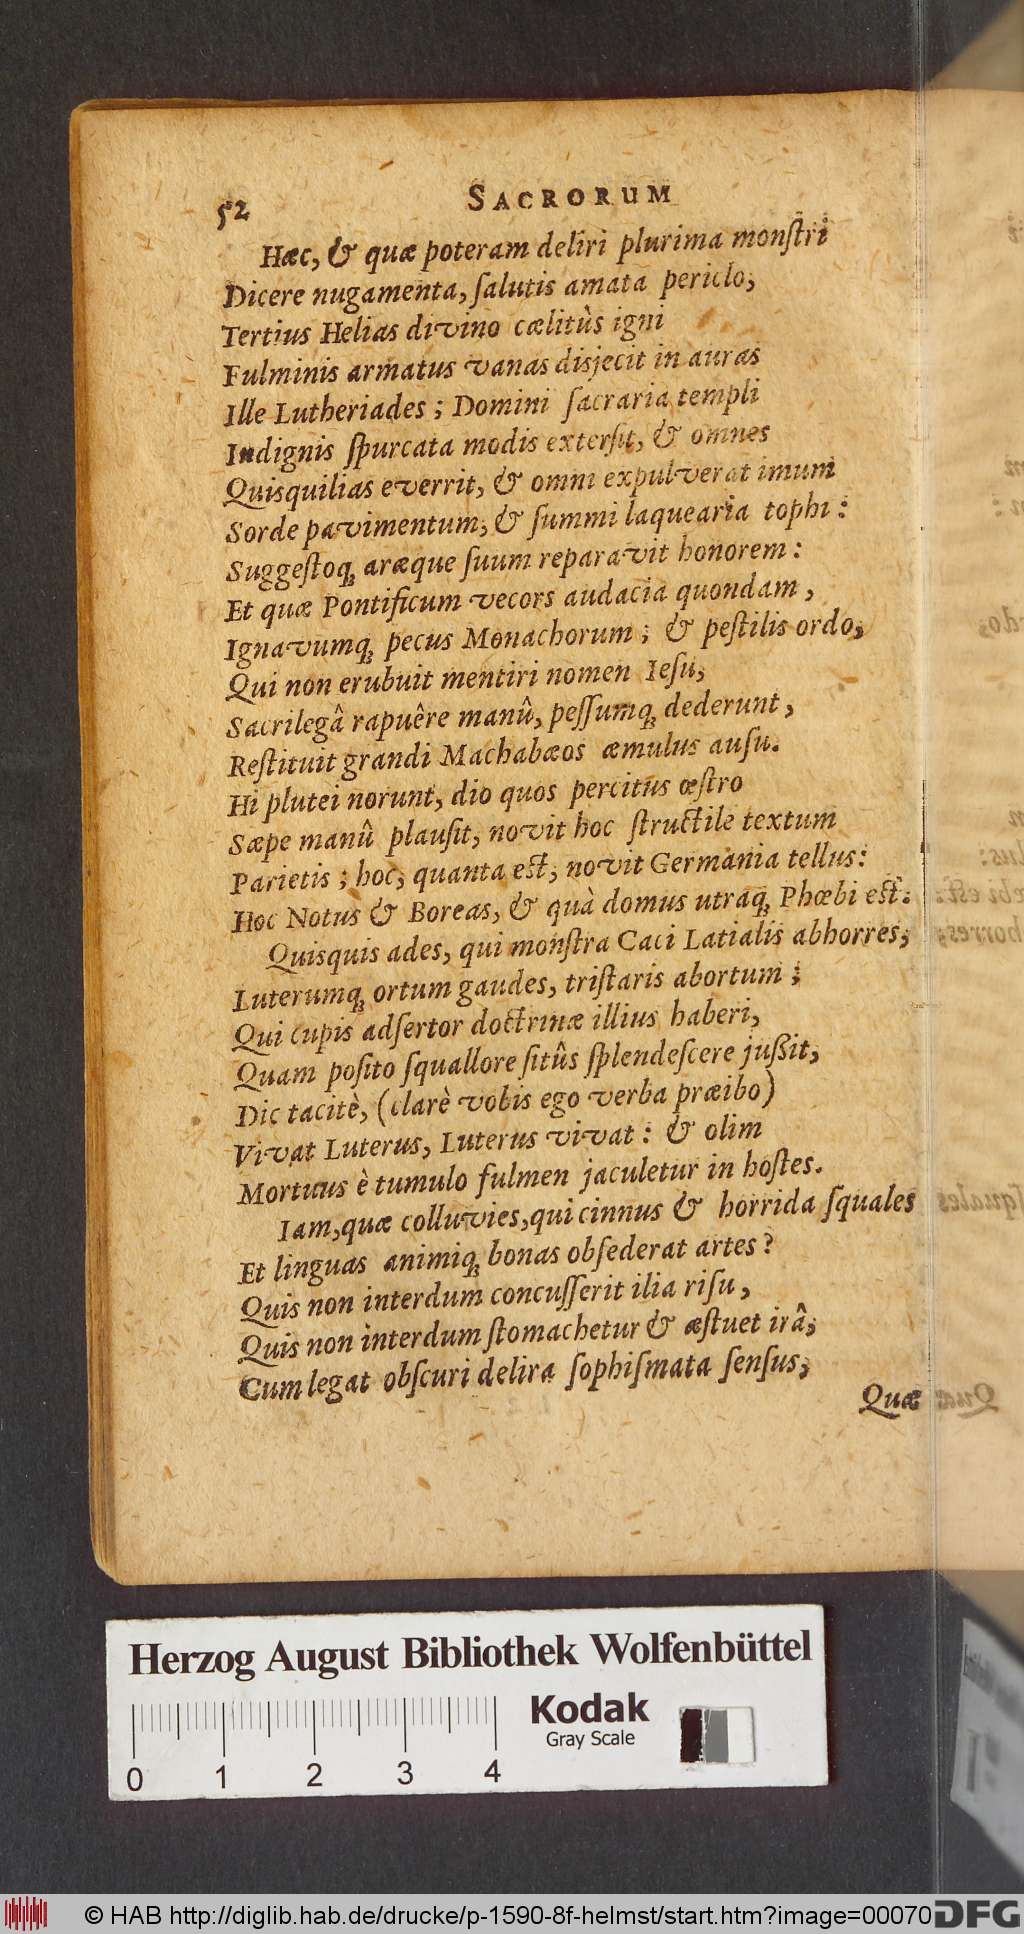 52 SACRORUM
Hæc, & quæ poteram deliri plurima monſtri
Dicere nugamenta, ſalutis amata periclo,
Tertius Helias divino cælitùs igni
Fulminis armatus vanas disjecit in auras
Ille Lutheriades; Domini ſacraria templi
Indignis ſpurcata modis exterſit, & omnes
Quisquilias everrit, & omni expulverat imum
Sorde pavimentum, & ſummi laquearia tophi:
Suggeſtoq; aræque ſuum reparavit honorem:
Et quæ Pontificum vecors audacia quondam,
Ignavumq; pecus Monachorum; & peſtilis ordo,
Qui non erubuit mentiri nomen Ieſu,
Sacrilegâ rapuêre manû, peſſumq; dederunt,
Reſtituit grandi Machabæos æmulus auſu.
Hi plutei norunt, dio quos percitus œſtro
Sæpe manû plauſit, novit hoc ſtructile textum
Parietis; hoc, quanta eſt, novit Germania tellus:
Hoc Notus & Boreas, & quà domus utraq; Phœbi eſt:
Quisquis ades, qui monſtra Caci Latialis abhorres,
Luterumq; ortum gaudes, triſtaris abortum;
Qui cupis adſertor doctrinæ illius haberi,
Quam poſito ſquallore ſitûs ſplendeſcere jußit,
Dic tacitè, (clarè vobis ego verba præibo)
Vivat Luterus, Luterus vivat: & olim
Mortuus è tumulo fulmen jaculetur in hoſtes.
Iam, quæ colluvies, qui cinnus & horrida ſquales
Et linguas animiq; bonas obſederat artes?
Quis non interdum concuſſerit ilia riſu,
Quis non interdum ſtomachetur & æſtuet irâ,
Cum legat obſcuri delira ſophiſmata ſenſus,
Quæ
Herzog August Bibliothek Wolfenbüttel
Kodak
Gray Scale
0 1 2 3 4
© HAB http://diglib.hab.de/drucke/p-1590-8f-helmst/start.htm?image=00070
DFG